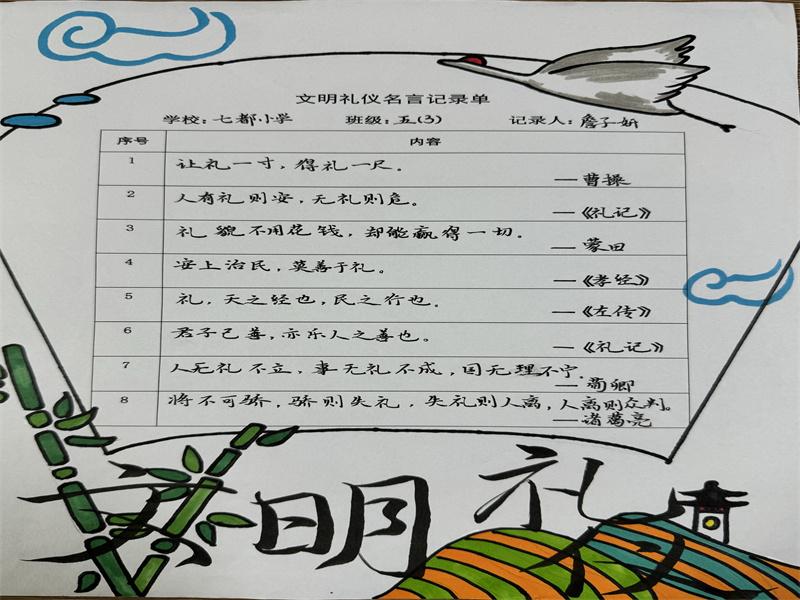 文明礼仪名言记录单
学校：七都小学 班级：五(3) 记录人：詹子妍
序号 内容
1 让礼一寸，得礼一尺。
—曹操
2 人有礼则安，无礼则危。
—《礼记》
3 礼貌不用花钱，却能赢得一切。
—蒙田
4 安上治民，莫善于礼。
—《孝经》
5 礼，天之经也，民之行也。
—《左传》
6 君子己善，亦乐人之善也。
—《礼记》
7 人无礼不立，事无礼不成，国无理不宁.
—荀卿
8 将不可骄，骄则失礼，失礼则人离，人离则众判。
—诸葛亮
文明礼仪